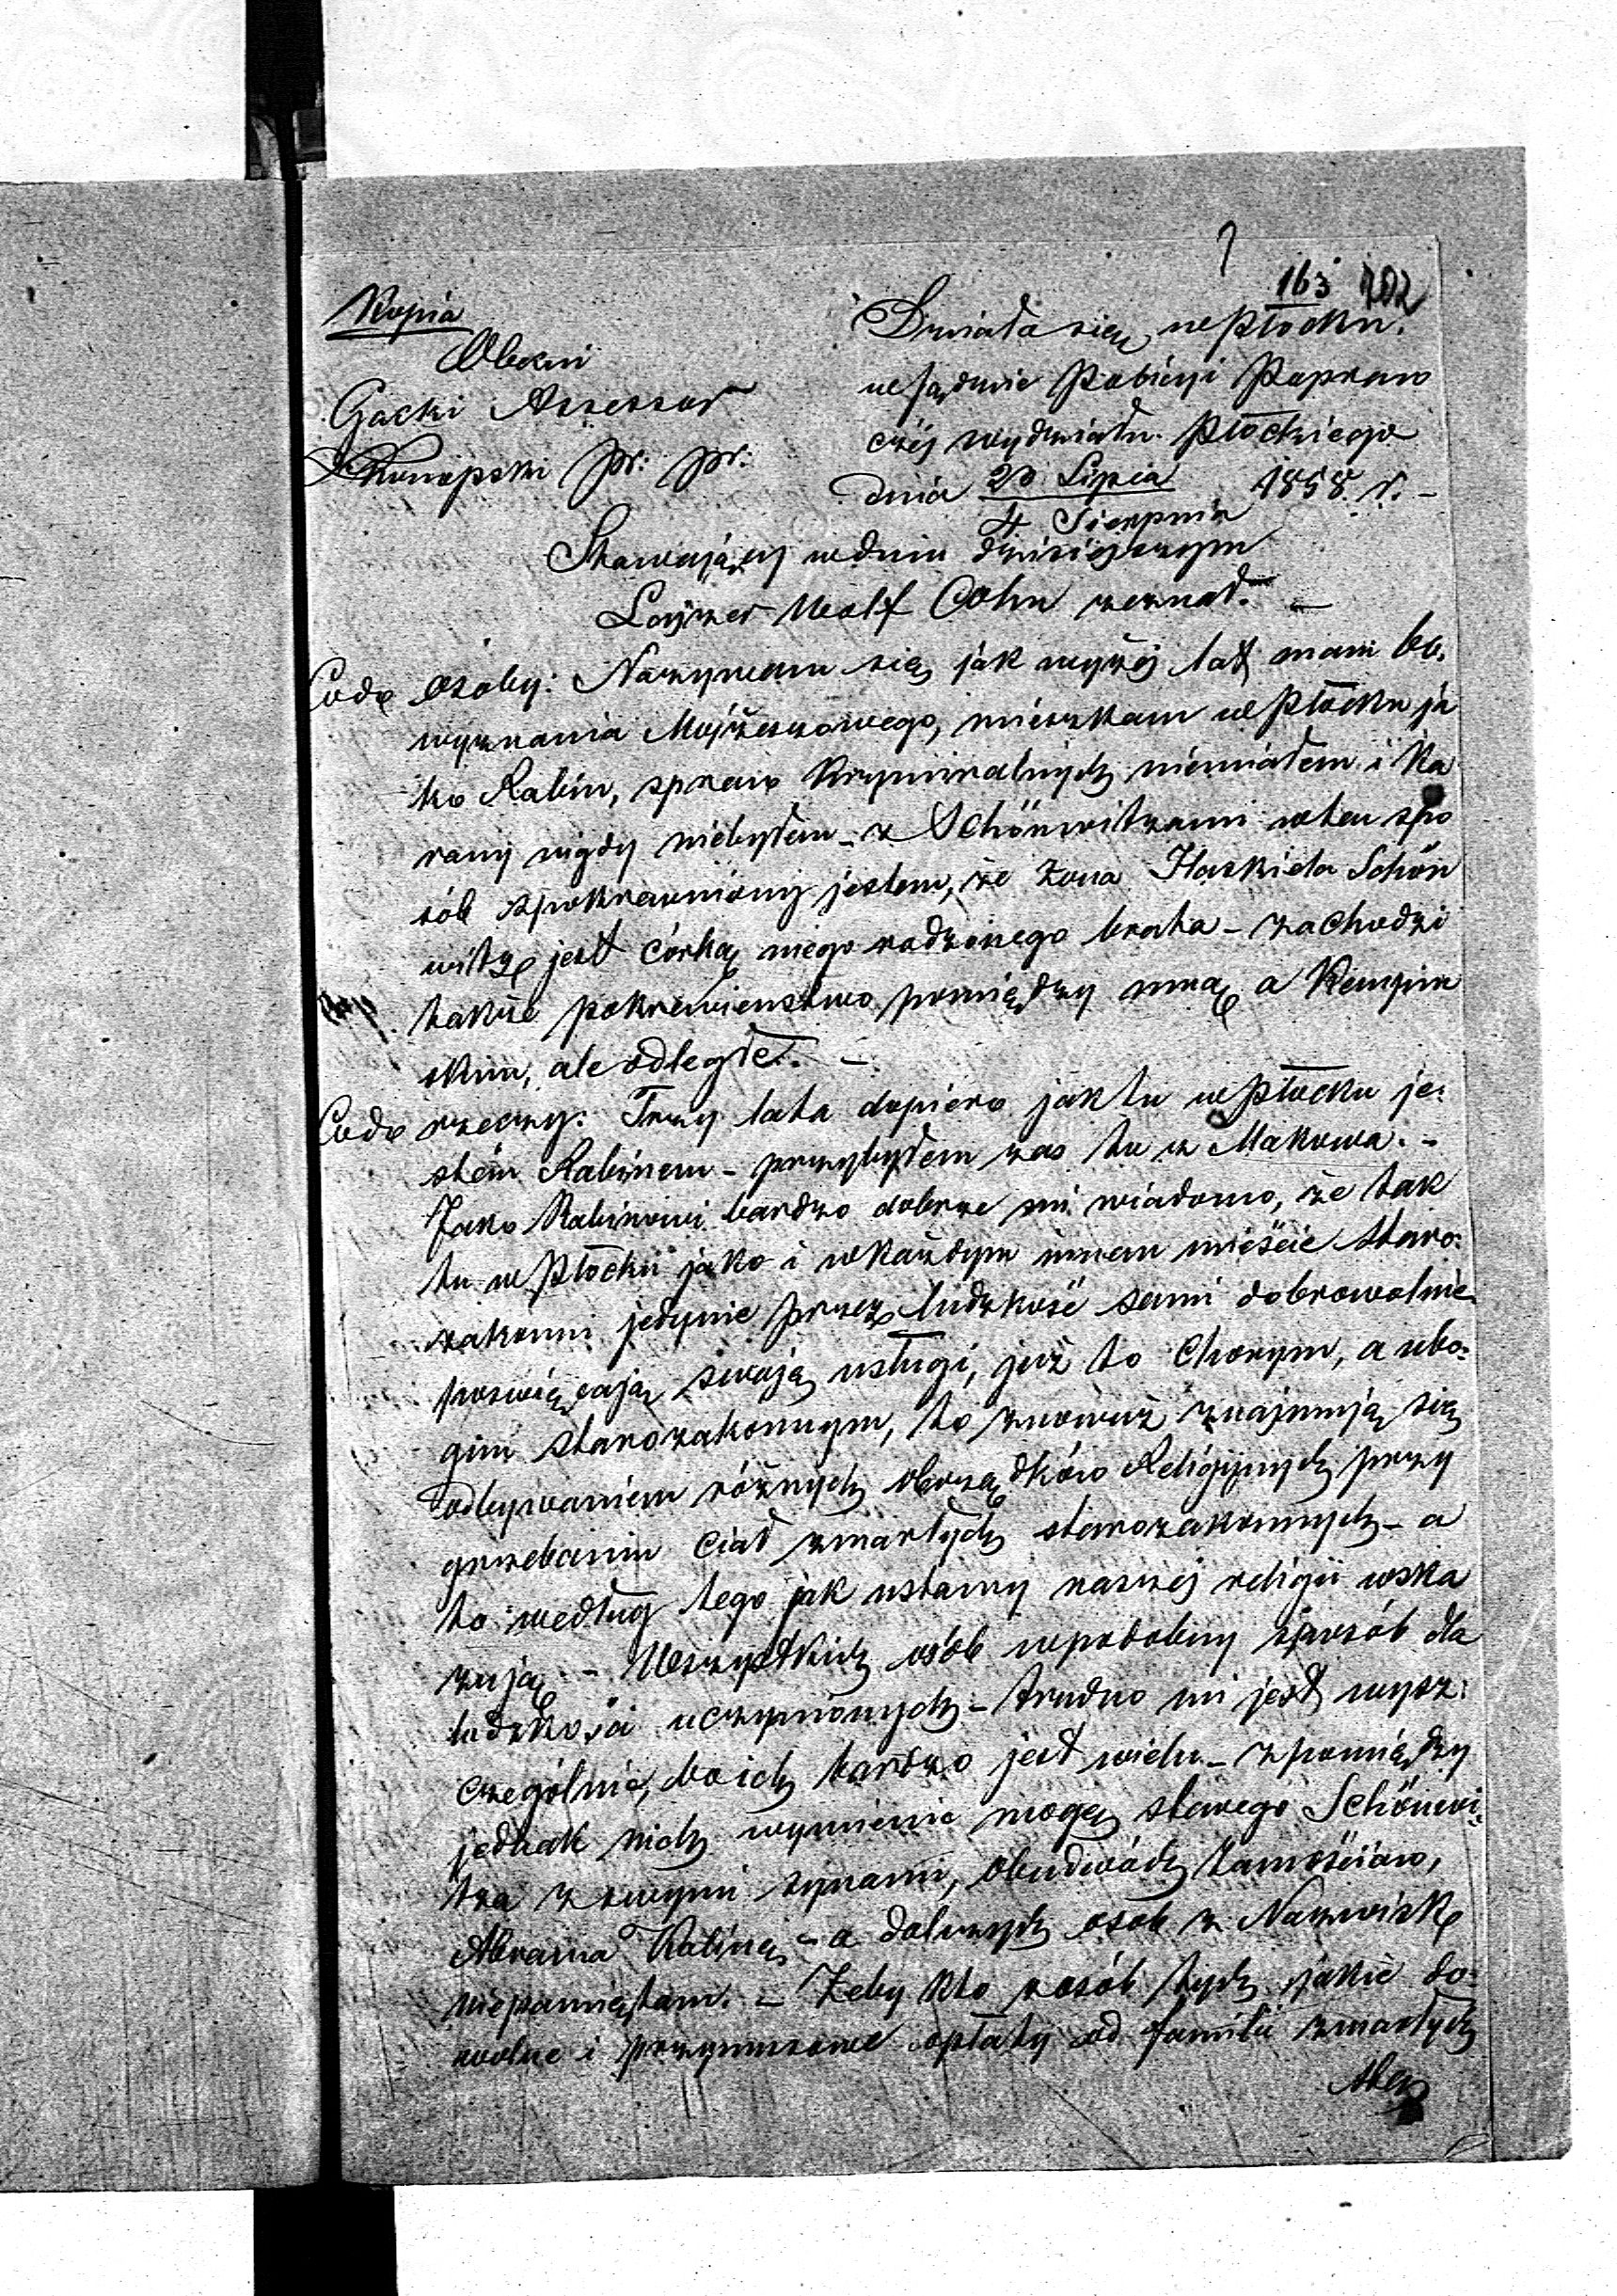 163 702
Kopia
Obecni
Gacki Assessor
Konopski pr: pr:
Działo się w Płocku
w Sądzie Policyi Popraw
czéj wydziału Płockiego
dnia 23 Lipca 1858 r. -
4 Sierpnia
Stawający w dniu dzisiéjszym
Layzer Wolf Cohn zeznał. -
Codo osoby: Nazywam się jak wyżéj lat mam 60.
wyznania Mojżeszowego, mieszkam w Płocku ja
ko Rabin, spraw kryminalnych niemiałem i ka
rany nigdy niebyłem - z Schönwitzami wten spo
sób spokrewniony jestem, że żona Haskiela Schön
witz jest córką mego rodzonego brata - zachodzi
także pokrewieństwo pomiędzy mną a Kempin
skim, ale odległe. -
Codo rzeczy: Trzy lata dopiero jak tu w Płocku je:
stem Rabinem - przybyłem zas tu z Makowa. -
Jako Rabinowi bardzo dobrze mi wiadomo, że tak
tu w Płocku jako i wkażdym innem mieście staro:
zakonni jedynie przez ludzkość sami dobrowolnie
poswięcają swoją usługi, już to chorym, a ubo:
gim starozakonnym, to znowuż znajmują się
odbywaniem różnych obrządków Religijnych przy
grzebaniu ciał zmarłych starozakonnych - a
to według tego jak ustawy naszéj religii wska
zują. - Wszystkich osób wpodobny sposób dla
ludzkości uczynionych - trudno mi jest wysz:
czególnić, bo ich bardzo jest wielu - zpomiędzy
jednak nich wymienić mogę starego Schönwi:
tza z swymi synami, obudwóch Zamościów,
Abrama Rabina - a dalszych osób z Nazwisk
niepamiętam. - Żeby kto zosób tych jakie do:
wolne i przymusowe opłaty od familii zmarłych